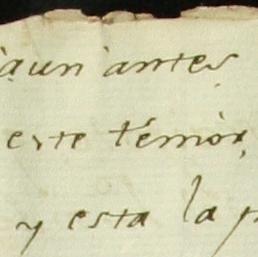 aun antes
este témor,
y esta la p